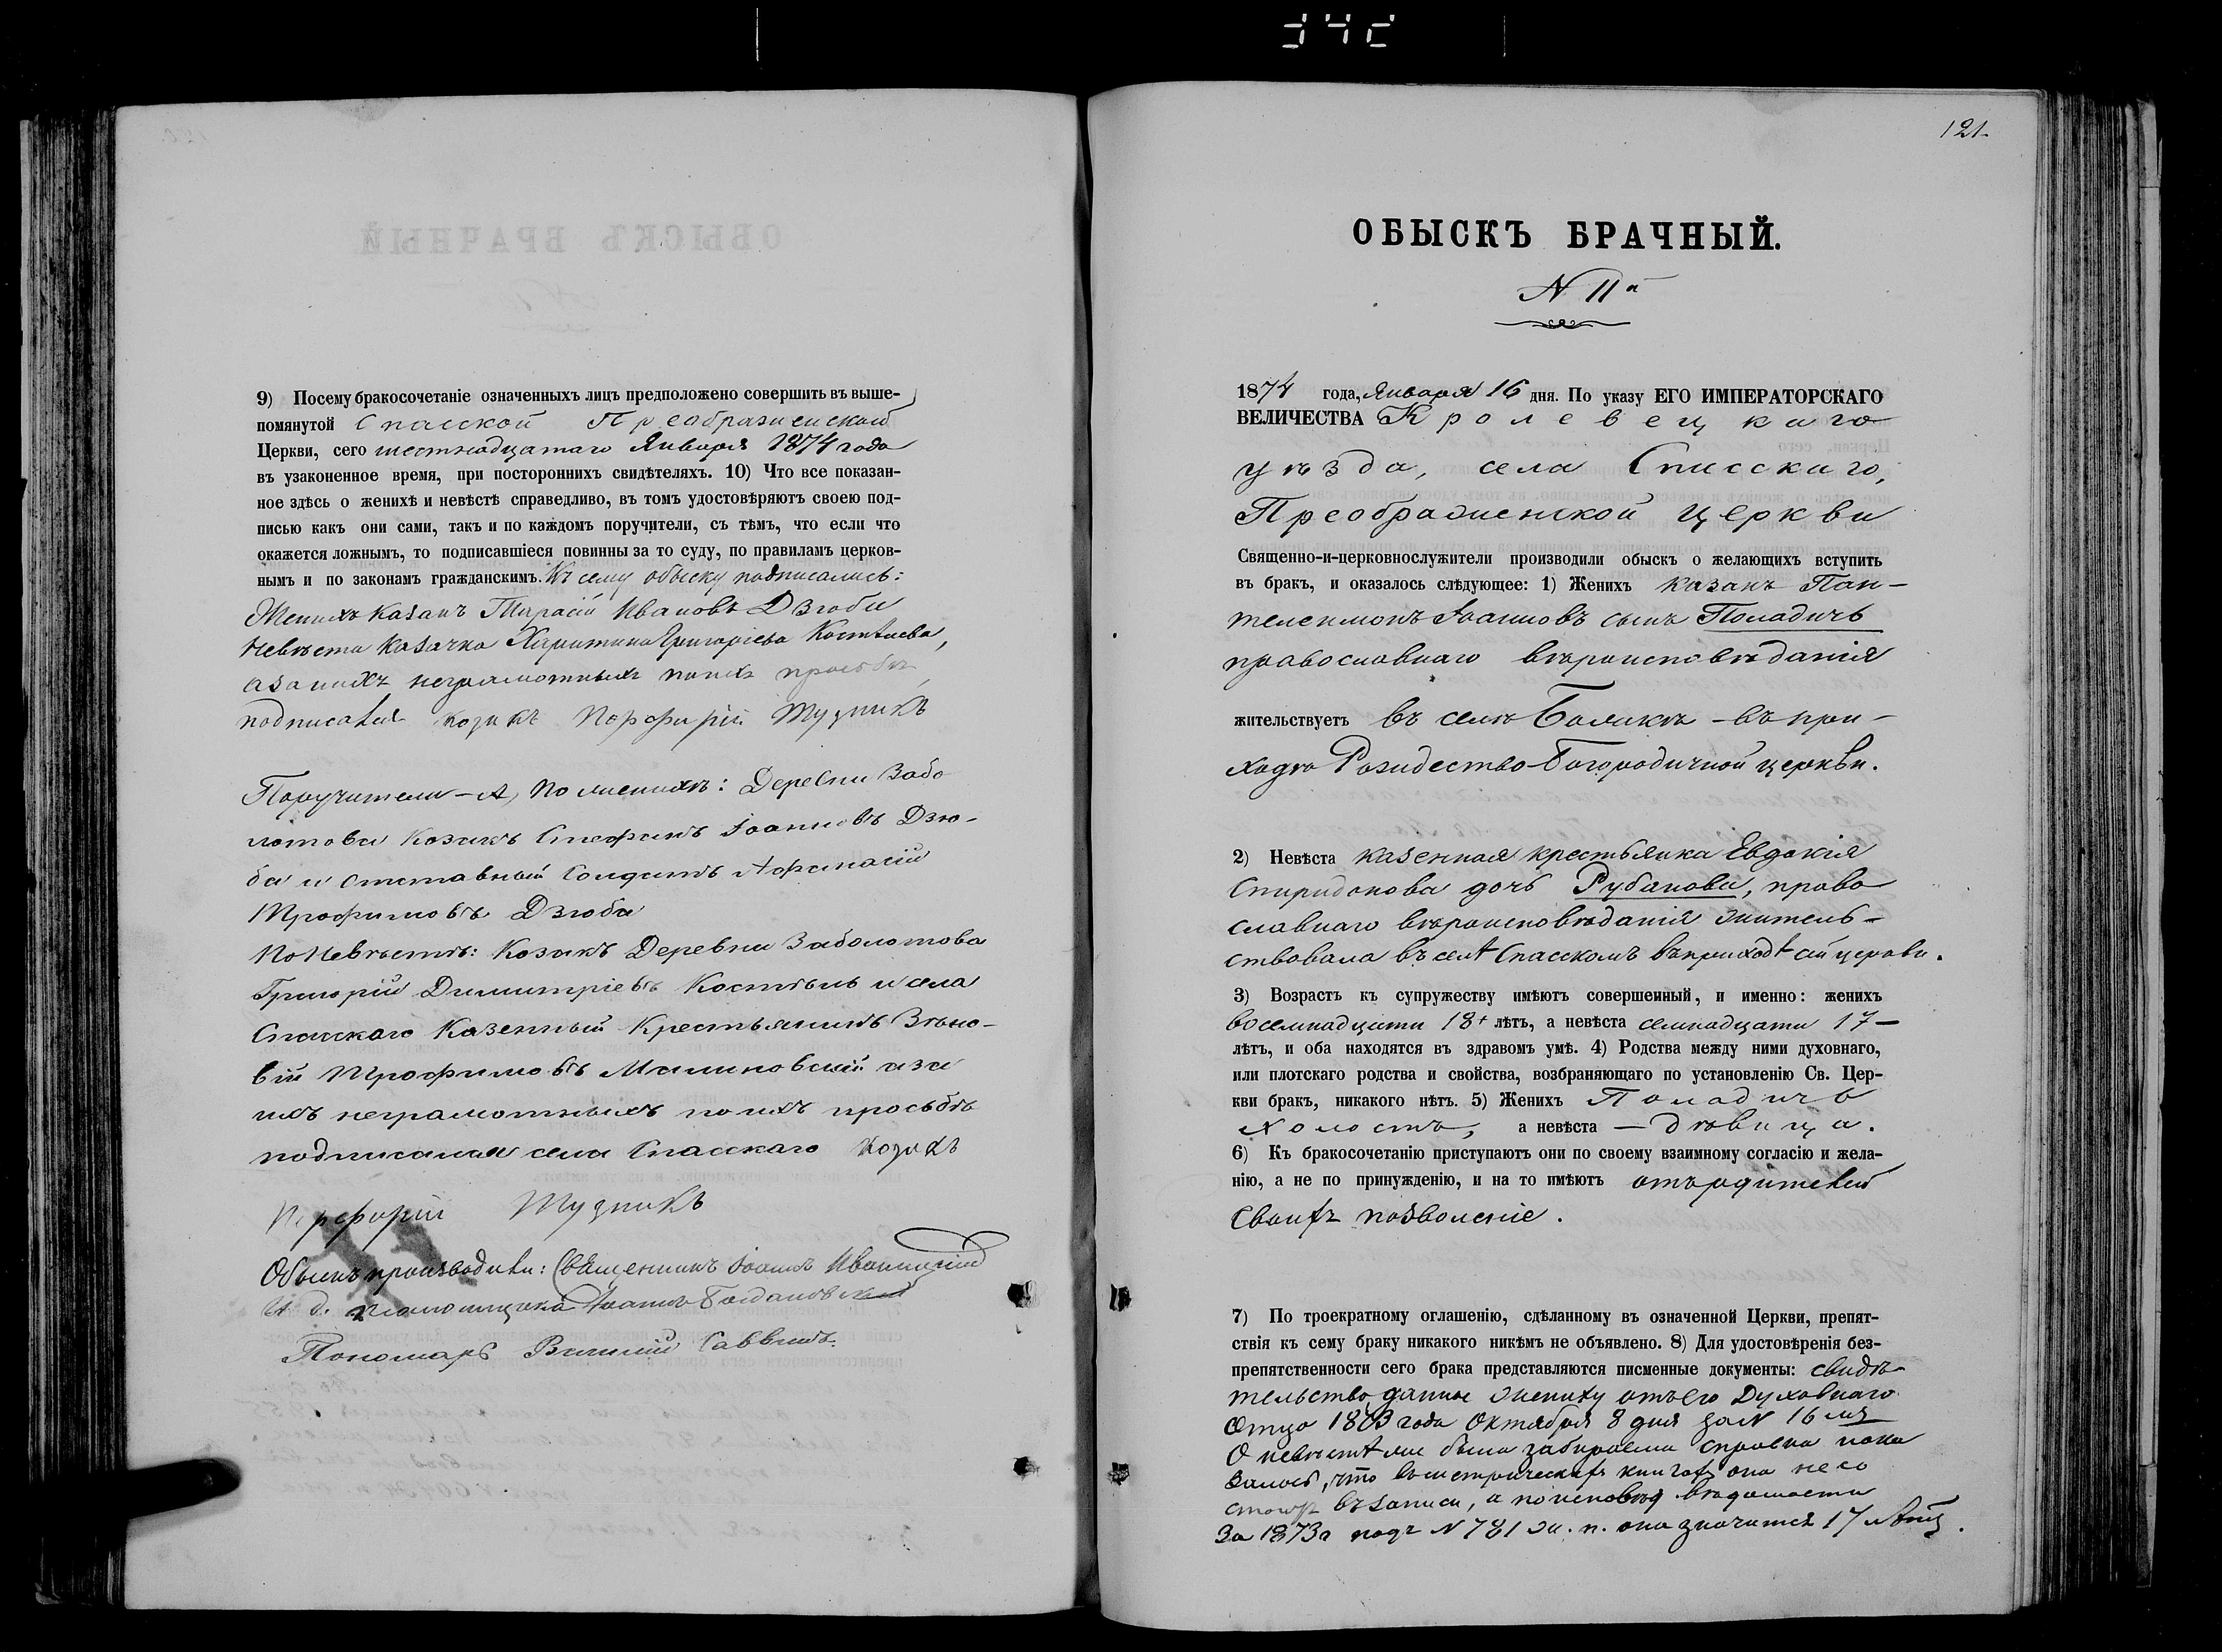 342
9) Посему бракосочетаніе означенныхъ лицъ предположено совершить въ выше-
помянутой Спасской Преображенской
Церкви, сего шестнадцатаго Января 1874 года
въ узаконенное время, при постороннихъ свидѣтеляхъ. 10) Что все показан-
ное здѣсь о женихѣ и невѣстѣ справедливо, въ томъ удостовѣряютъ своею под-
писью какъ они сами, такъ и по каждомъ поручители, съ тѣмъ, что если что
окажется ложнымъ, то подписавшіеся повинны за то суду, по правиламъ церков-
нымъ и по законамъ гражданскимъ. Къ сему обыску подписались:
Женихъ казакъ Тарасій Ивановъ Дзюба
Невѣста казачка Харитина Григоріева Костѣева,
а за нихъ неграмотныхъ по ихъ просьбѣ
подписался козакъ Порфирій Тузникъ
Поручители – А, По женихѣ: Деревни Забо
лотова Козакъ Стефанъ Іоанновъ Дзю-
ба и отставный Солдатъ Афанасій
Трофимовъ Дзюба
По Невѣстѣ: Козакъ Деревни Заболотова
Григорій Димитріевъ Костѣвъ и села
Спасскаго Казенный Крестьянинъ Зѣно-
вій Трофимовъ Малиновскій а за
ихъ неграмотныхъ по ихъ просьбѣ
подписался села Спасскаго Козакъ
Порфирій Тузникъ
Обыскъ производили: Священникъ Іоаннъ Иваницкій
И. д. псаломщика Іоаннъ Богдановскій
Пономарь Василій Саввичъ.
121.
ОБЫСКЪ БРАЧНЫЙ.
N 11й
1874 года, Января 16 дня. По указу ЕГО ИМПЕРАТОРСКАГО
ВЕЛИЧЕСТВА Кролевецкаго
уѣзда, села Спасскаго,
Преображенской церкви
Священно-и-церковнослужители производили обыскъ о желающихъ вступить
въ бракъ, и оказалось слѣдующее: 1) Женихъ казакъ Пан-
телеимонъ Іоанновъ сынъ Поладичъ
православнаго вѣроисповѣданія
жительствуетъ въ селѣ – въ при-
ходѣ Рождество-Богородичной церкви.
2) Невѣста казенная крестьянка Евдокія
Спиридонова дочь Рубанова, право
славнаго вѣроисповѣданія житель-
ствовала въ селѣ Спасскомъ въ приходѣ сей церкви.
3) Возрастъ къ супружеству имѣютъ совершенный, и именно: женихъ
восемнадцати 18 лѣтъ, а невѣста семнадцати 17 –
лѣтъ, и оба находятся въ здравомъ умѣ. 4) Родства между ними духовнаго,
или плотскаго родства и свойства, возбраняющаго по установленію Св. Цер-
кви бракъ, никакого нѣтъ. 5) Женихъ Поладичъ
Холостъ, а невѣста – дѣвица.
6) Къ бракосочетанію приступаютъ они по своему взаимному согласію и жела-
нію, а не по принужденію, и на то имѣютъ отъ родителей
своихъ позволеніе.
7) По троекратному оглашенію, сдѣланному въ означенной Церкви, препят-
ствія къ сему браку никакого никѣмъ не объявлено. 8) Для удостовѣренія без-
препятственности сего брака представляются писменные документы: свидѣ-
тельство, данное жениху отъ его Духовнаго
Отца 1873 года Октября 8 дня за N 16мъ
О невѣстѣ же была забираема справка пока
залось, что въ метрическихъ книгахъ она не со
стоитъ въ записи, а по исповѣд вѣдомости
За 1873 г. подъ N 781 ж. п. она значится 17 лѣтъ.